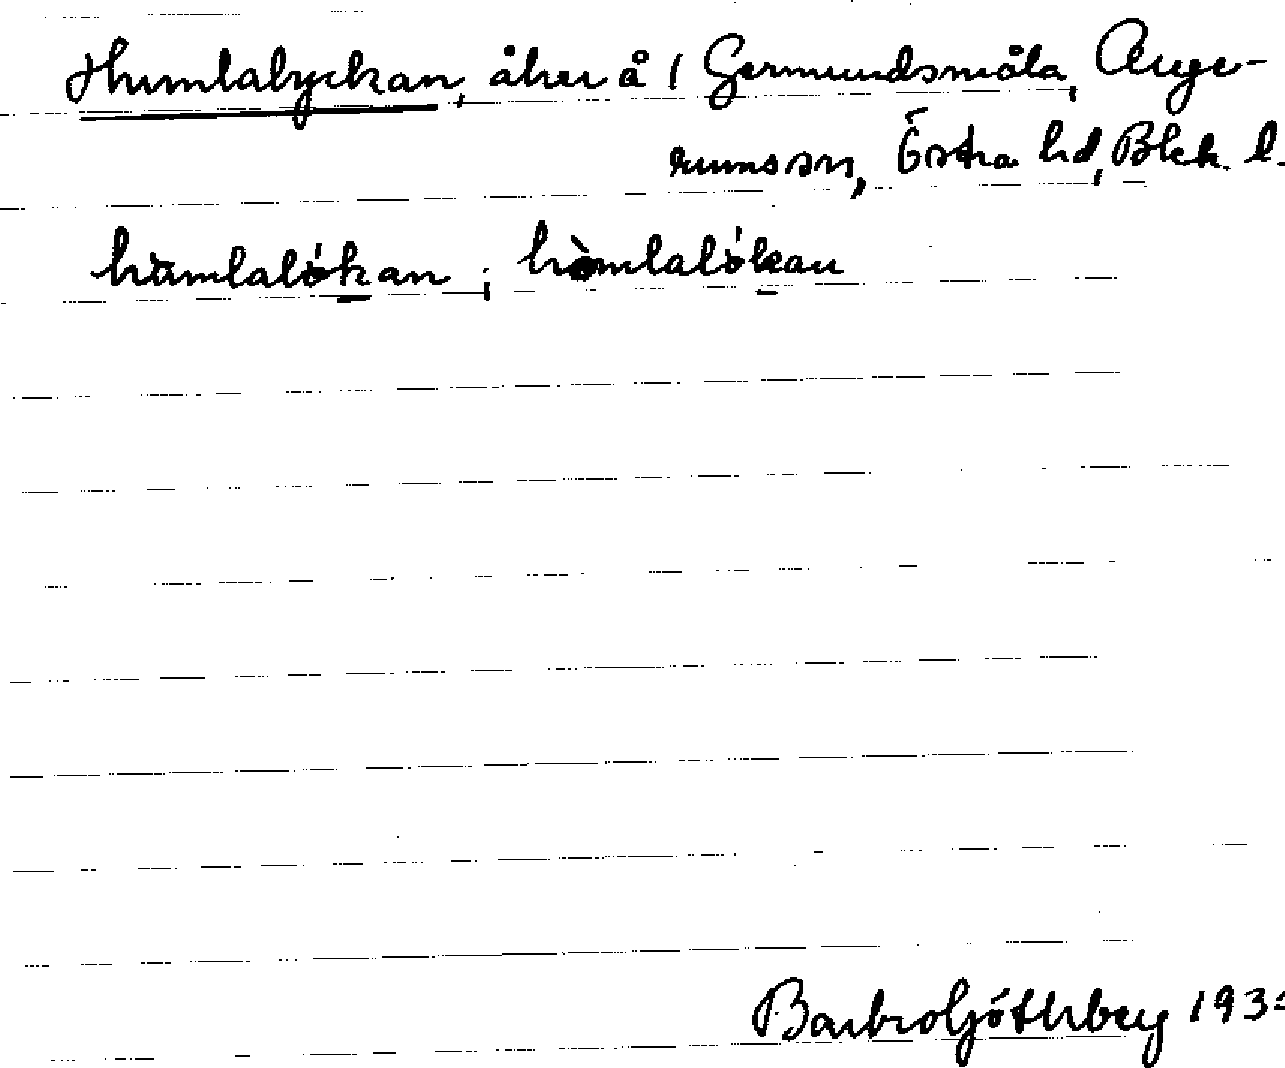 Humlalyckan, åker å 1 Germundsmåla, Auge-
rums sn, Östra hd, Blek. l.
hùmlalókan ; hòmlalókan
Barbro Göthberg 193